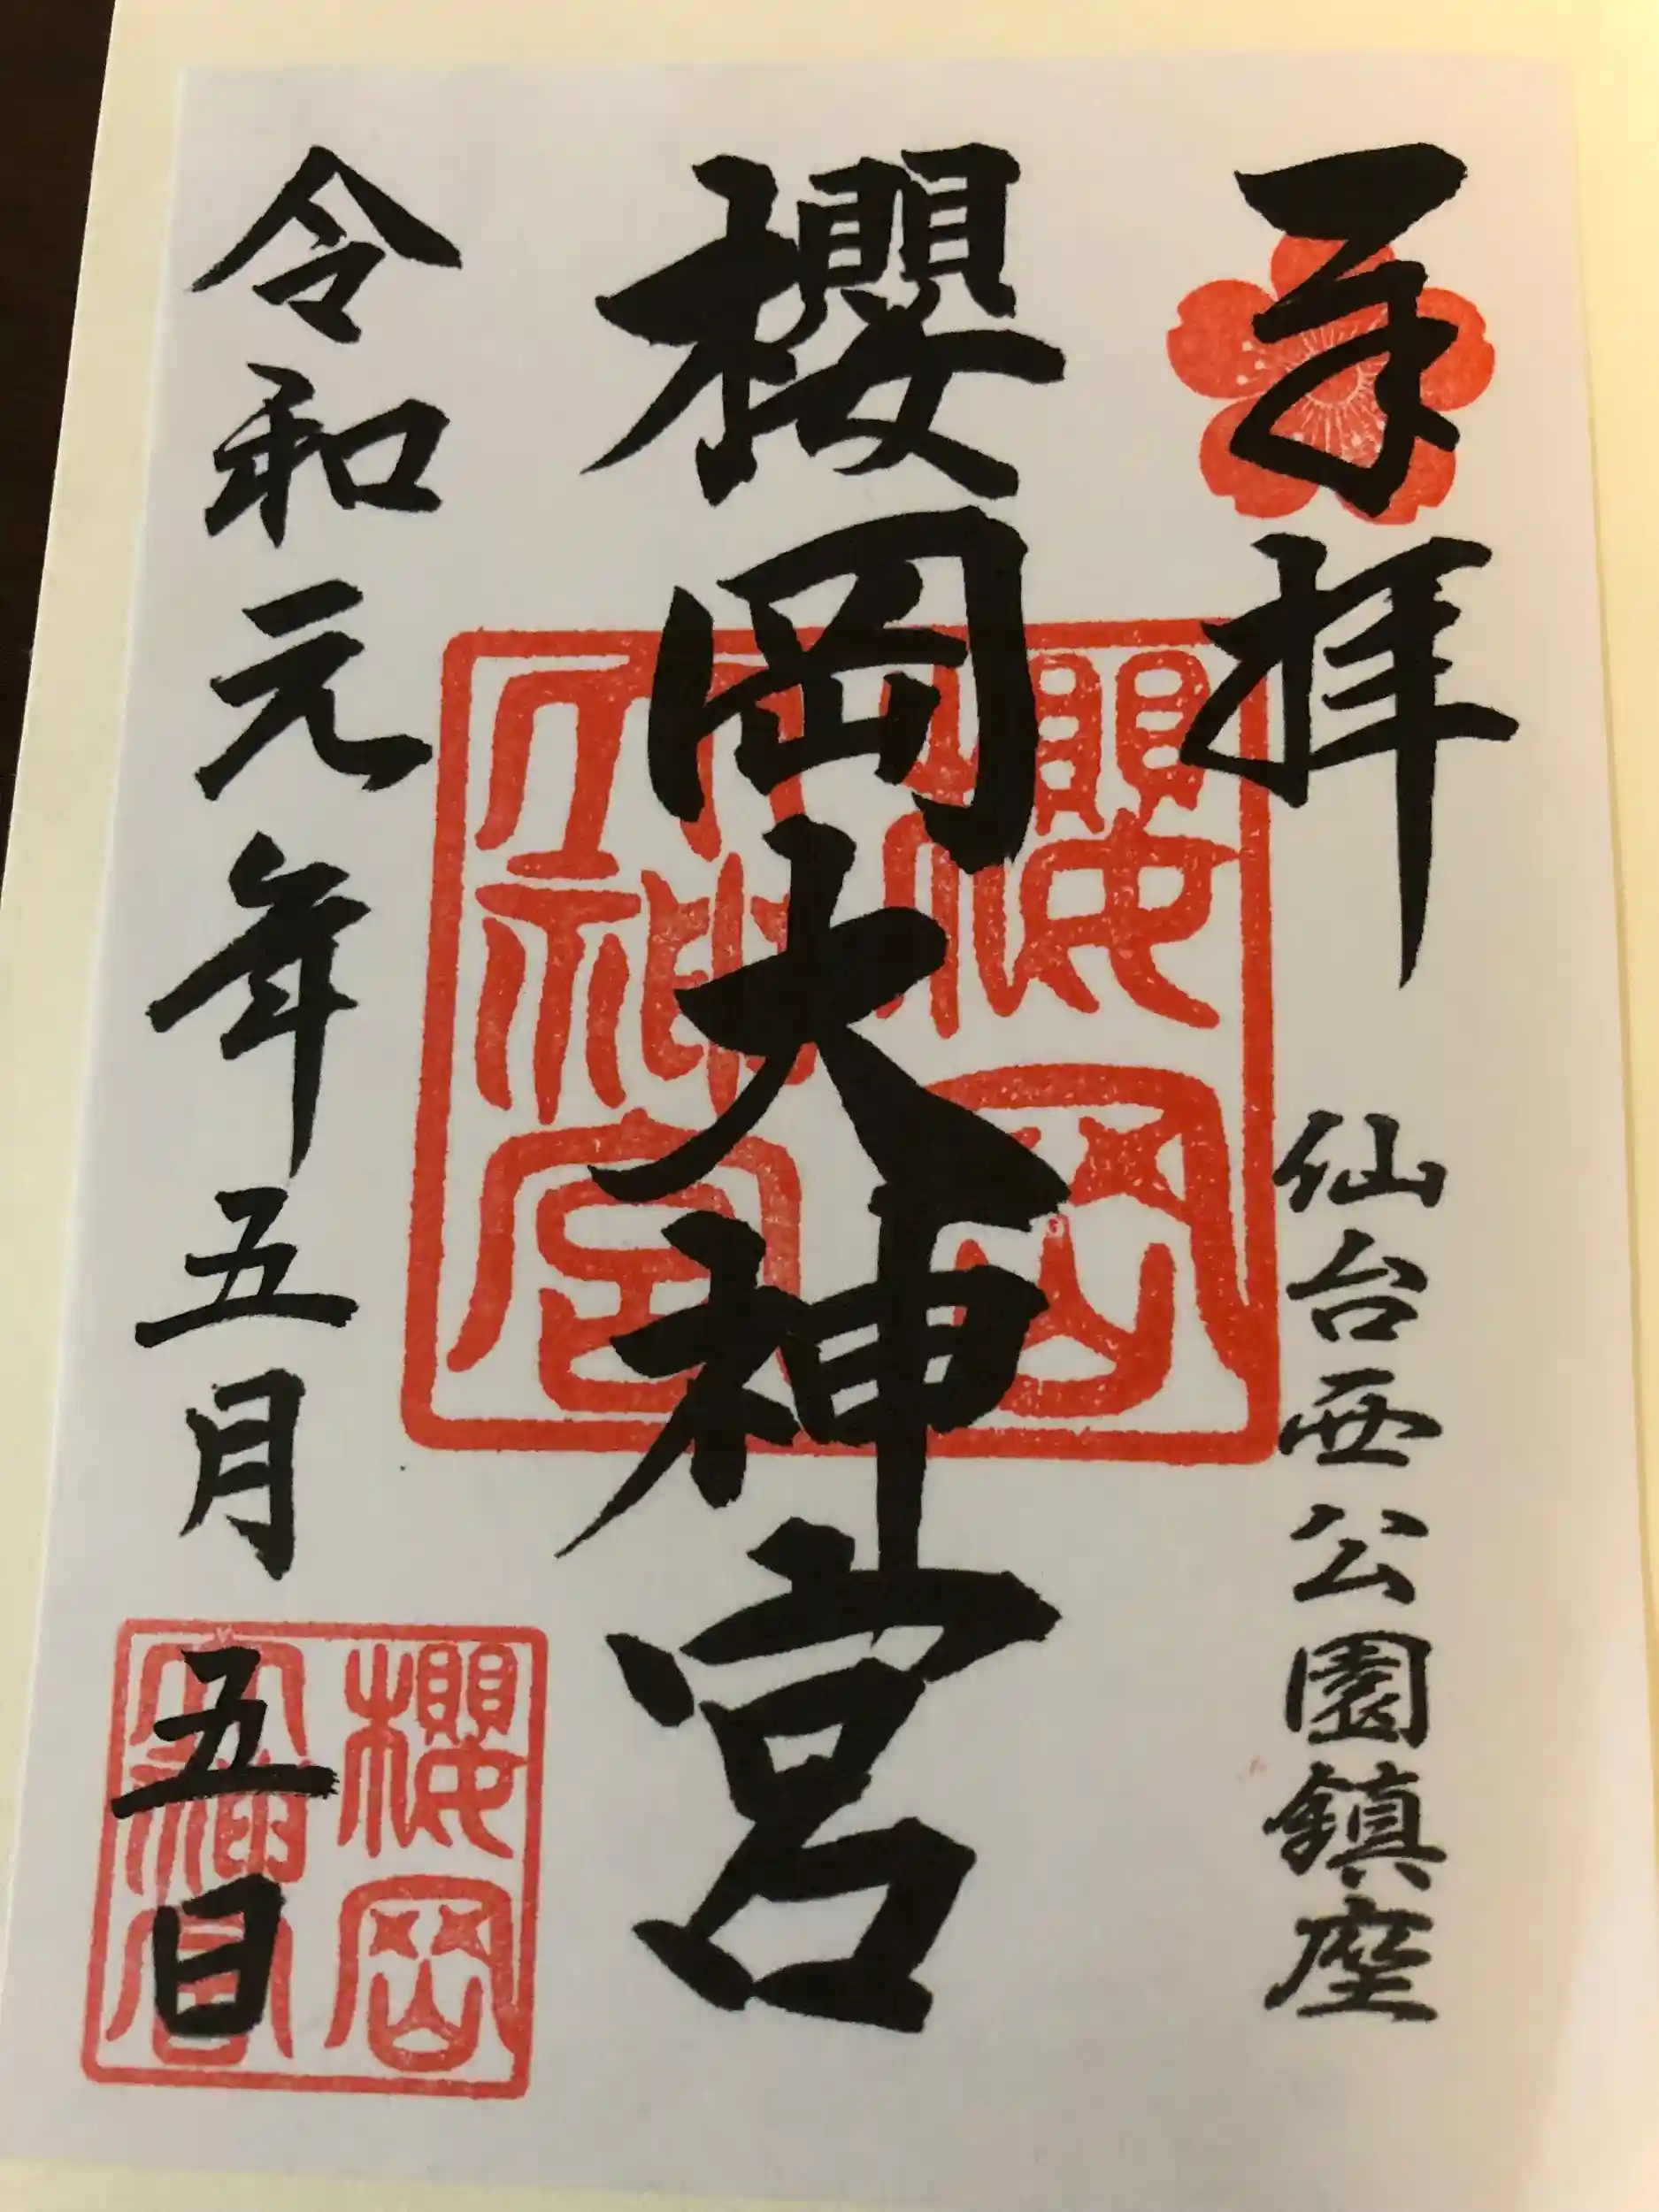 奉拝
仙台西公園鎮座
櫻岡大神宮
櫻岡
大神宮
令和元年五月五日
櫻岡
大神宮